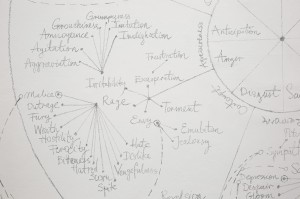 Grumpiness
Grouchiness
Irritation
Annoyance
Indignation
Agitation
Aggravation
Frustration
Annoyance
Anticipation
Anger
Irritability
Exasperation
Disgust
Malice
Rage
Torment
Outrage
Fury
Envy
Wrath
Emulation
Hostility
Jealousy
Ferocity
Hate
Bitterness
Dislike
Hatred
Vengefulness
Scorn
Spite
Depression
Despair